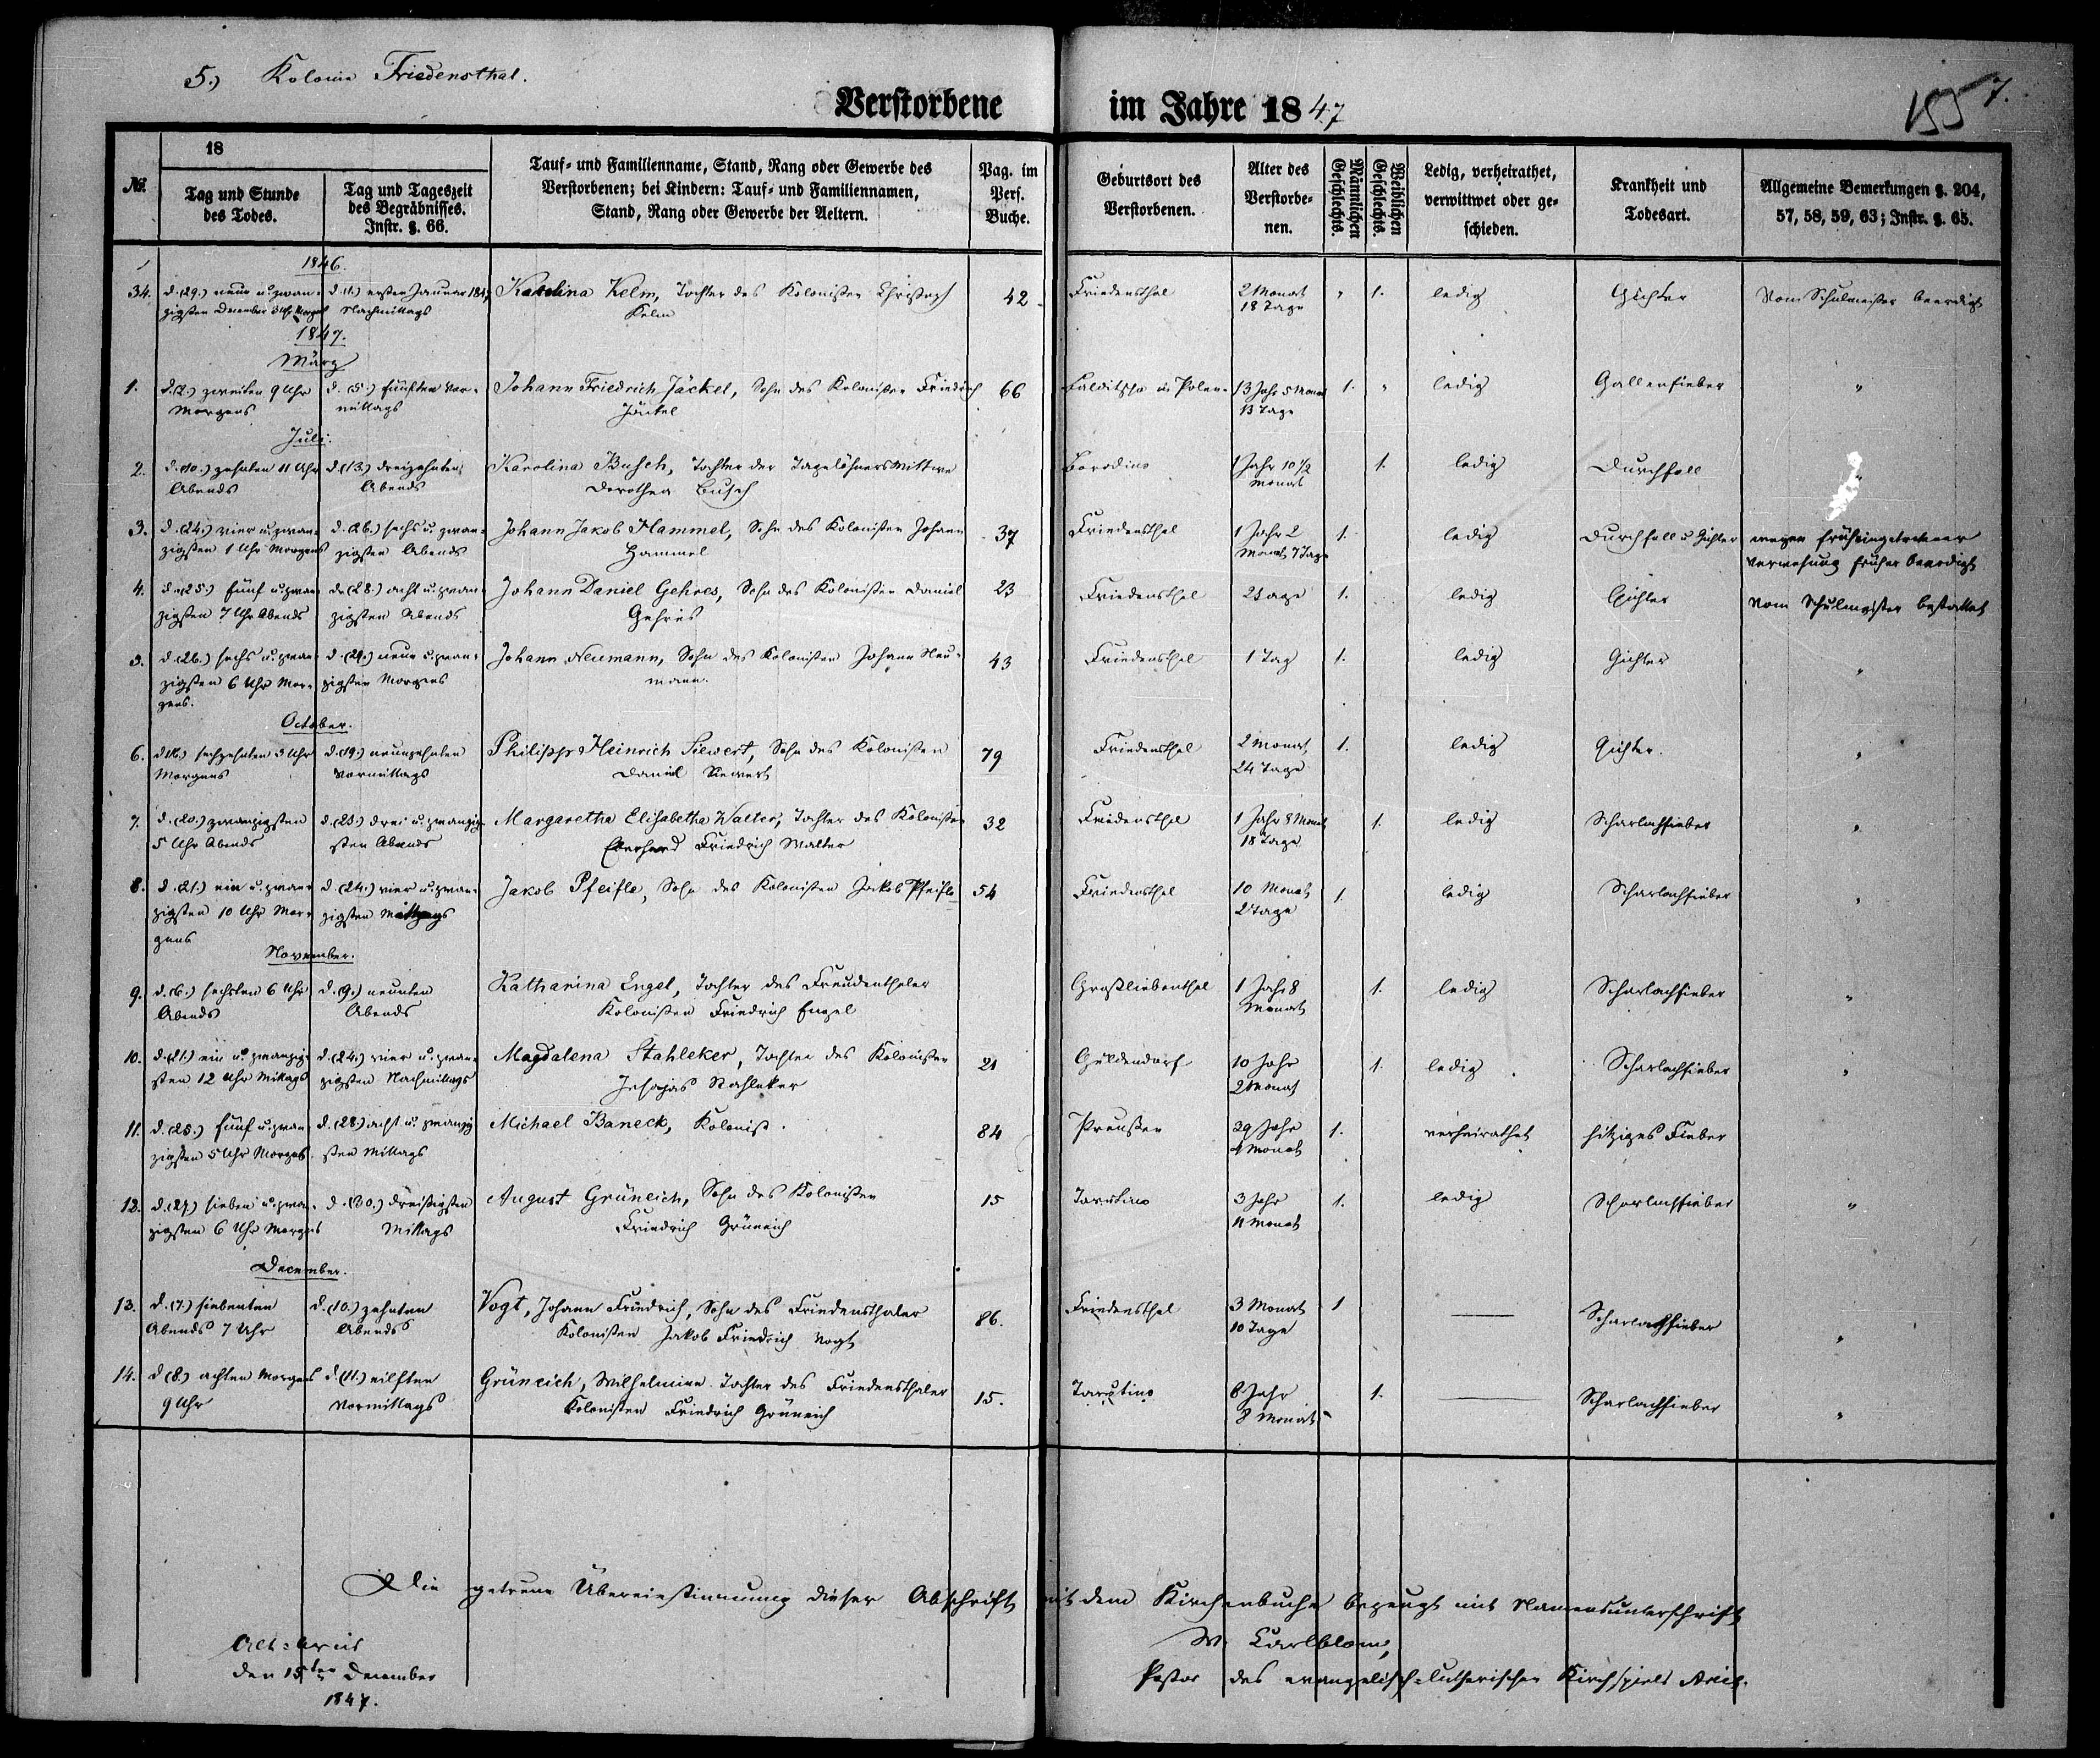 5.) Kolonie Friedensthal.
Verstorbene im Jahre 1847
155 7.
No.
18
Tag und Stunde des Todes.
Tag und Tageszeit des Begräbnisses. Instr. §. 66.
Tauf- und Familienname, Stand, Rang oder Gewerbe des
Verstorbenen; bei Kindern: Tauf- und Familiennamen,
Stand, Rang oder Gewerbe der Aeltern.
Pag. im Pers. Buche.
Geburtsort des Verstorbenen.
Alter des Verstorbe-nen.
Männlichen Geschlechts.
Weiblichen Geschlechts.
Ledig, verheirathet, verwittwet oder ge-schieden.
Krankheit und Todesart.
Allgemeine Bemerkungen §. 204, 57, 58, 59, 63; Instr. §. 65.
1846.
34. d. (29.) neun u. zwan- d. (1.) ersten Januar 1847 Karolina Kelm, Tochter des Kolonisten Christoph 42 Friedensthal 2 Monat " 1. ledig Gichter Vom Schulmeister beerdigt
zigsten December 3 Uhr Morgens Nachmittags Kelm 18 Tage
1847.
März
1. d. (2.) zweiten 9 Uhr d. (5.) fünften Vor- Johann Friedrich Jäckel, Sohn des Kolonisten Friedrich 66 in Polen 13 Jahr 5 Monat 1. " ledig Gallenfieber "
Morgens mittags Jäckel 13 Tage
Juli.
2. d. (10.) zehnten 11 Uhr d. (13.) dreizehnten Karolina Busch, Tochter der Tagelöhners Wittwe Borodino 1 Jahr 10 1/2 1. ledig Durchfall "
Abends Abends Dorothea Busch Monat
3. d. (24.) vier u. zwan- d. (26.) sechs u. zwan- Johann Jakob Hammel, Sohn des Kolonisten Johann 37 Friedensthal 1 Jahr 2 1. ledig Durchfall u. Gichter wegen früheingetretener
zigsten 1 Uhr Morgens zigsten Abends Hammel Monat 7 Tage Verwesung früher beerdigt
4. d. (25.) fünf u. zwan- d. (28.) acht u. zwan- Johann Daniel Gehres, Sohn des Kolonisten Daniel 23 Friedensthal 2 Tage 1. ledig Gichter Vom Schulmeister bestattet
zigsten 7 Uhr Abends zigsten Abends Gehres
5. d. (26.) sechs u. zwan- d. (29.) neun u. zwan- Johann Neumann, Sohn des Kolonisten Johann Neu- 43 Friedensthal 1 Tag 1. ledig Gichter "
zigsten 6 Uhr Mor- zigsten Morgens mann.
gens.
October.
6. d. (16.) sechzehnten 3 Uhr d. (19.) neunzehnten Philipp Heinrich Siewert, Sohn des Kolonisten 79 Friedensthal 2 Monat 1. ledig Gichter. "
Morgens Vormittags Daniel Siewert 24 Tage
7. d. (20.) zwanzigsten d. (23.) drei u. zwanzig- Margaretha Elisabetha Walter, Tochter des Kolonisten 32 Friedensthal 1 Jahr 8 Monat 1. ledig Scharlachfieber "
5 Uhr Abends sten Abends Eberhard Friedrich Walter 18 Tage
8. d. (21.) ein u. zwan- d. (24.) vier u. zwan- Jakob Pfeifle, Sohn des Kolonisten Jakob Pfeifle 54 Friedensthal 10 Monat 1. ledig Scharlachfieber "
zigsten 10 Uhr Mor- zigsten Mittags 2 Tage
gens
November.
9. d. (6.) sechsten 6 Uhr d. (9.) neunten Katharina Engel, Tochter des Freudenthaler Großliebenthal 1 Jahr 8 1. ledig Scharlachfieber "
Abends Abends Kolonisten Friedrich Engel Monat
10. d. (21.) ein u. zwanzig- d. (24.) vier u. zwan- Magdalena Stahleker, Tochter des Kolonisten 21 Güldendorf 10 Jahr 1. ledig Scharlachfieber "
sten 12 Uhr Mittags zigsten Nachmittags Jesajas Stahleker 2 Monat
11. d. (25.) fünf u. zwan- d. (28.) acht u. zwanzig- Michael Baneck, Kolonist. 84 Preußen 29 Jahr 1. verheirathet hitziges Fieber
zigsten 5 Uhr Morgens sten Mittags 4 Monat
12. d. (27.) sieben u. zwan- d. (30.) dreißigsten August Grüneich, Sohn des Kolonisten 15 Tarutino 3 Jahr 1. ledig Scharlachfieber "
zigsten 6 Uhr Morgens Mittags Friedrich Grüneich 11 Monat
December.
13. d. (7.) siebenten d. (10.) zehnten Vogt, Johann Friedrich, Sohn des Friedensthaler 86. Friedensthal 3 Monat 1 — Scharlachfieber "
Abends 7 Uhr Abends Kolonisten Jakob Friedrich Vogt 10 Tage
14. d. (8.) achten Morgens d. (11.) eilften Grüneich, Wilhelmine Tochter des Friedensthaler 15. Tarutino 8 Jahr 1. — Scharlachfieber "
9 Uhr Vormittags Kolonisten Friedrich Grüneich 8 Monat
Die getreue Übereinstimmung dieser Abschrift mit dem Kirchenbuche bezeugt mit Namensunterschrift
Alt-Arcis W. Carlblom,
den 15ten December Pastor des evangelisch-lutherischen Kirchspiels Arcis.
1847.